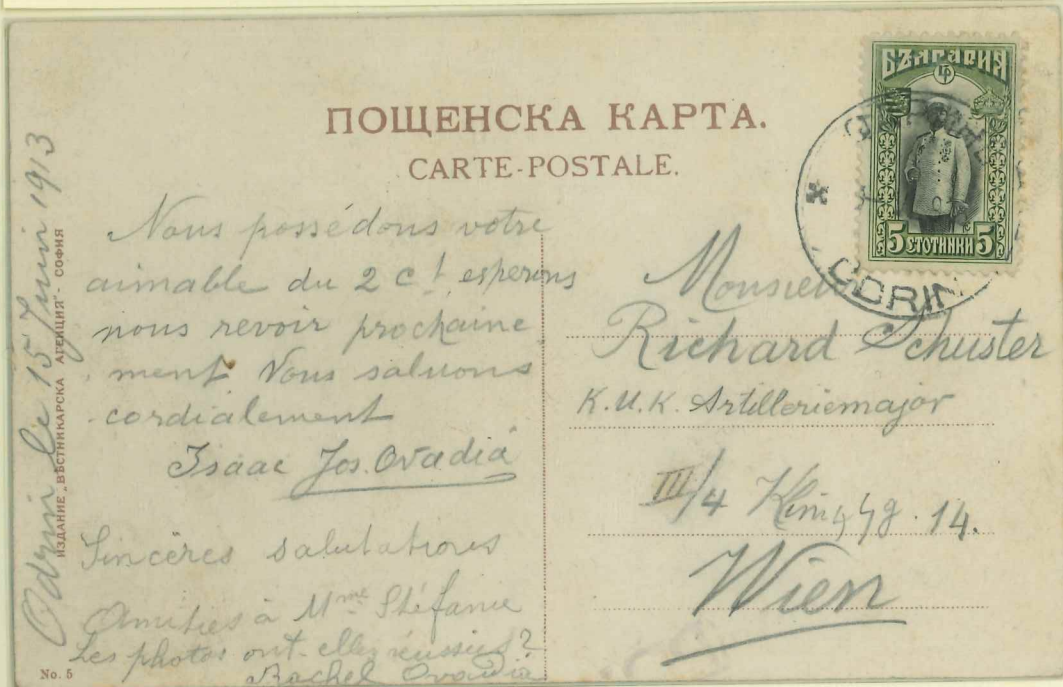 ПОЩЕНСКА КАРТА.
CARTE-POSTALE.
Odrin le 15 Juin 1913
ИЗДАНИЕ „ВѢСТНИКАРСКА АГЕНЦИЯ" - СОФИЯ
No. 5
Nous possédons votre
aimable du 2 ct esperons
nous revoir prochaine
ment Vous saluons
cordialement
Isaac Jos. Ovadia
Sincères salutations
Amitiés à Mme Stéfanie
Les photos ont-elles réussies?
Rachel Ovadia
БЪЛГАРИЯ
5 СТОТИНКИ 5
ODRIN
Monsieur
Richard Schuster
K.U.K. Artilleriemajor
III/4 14.
Wien